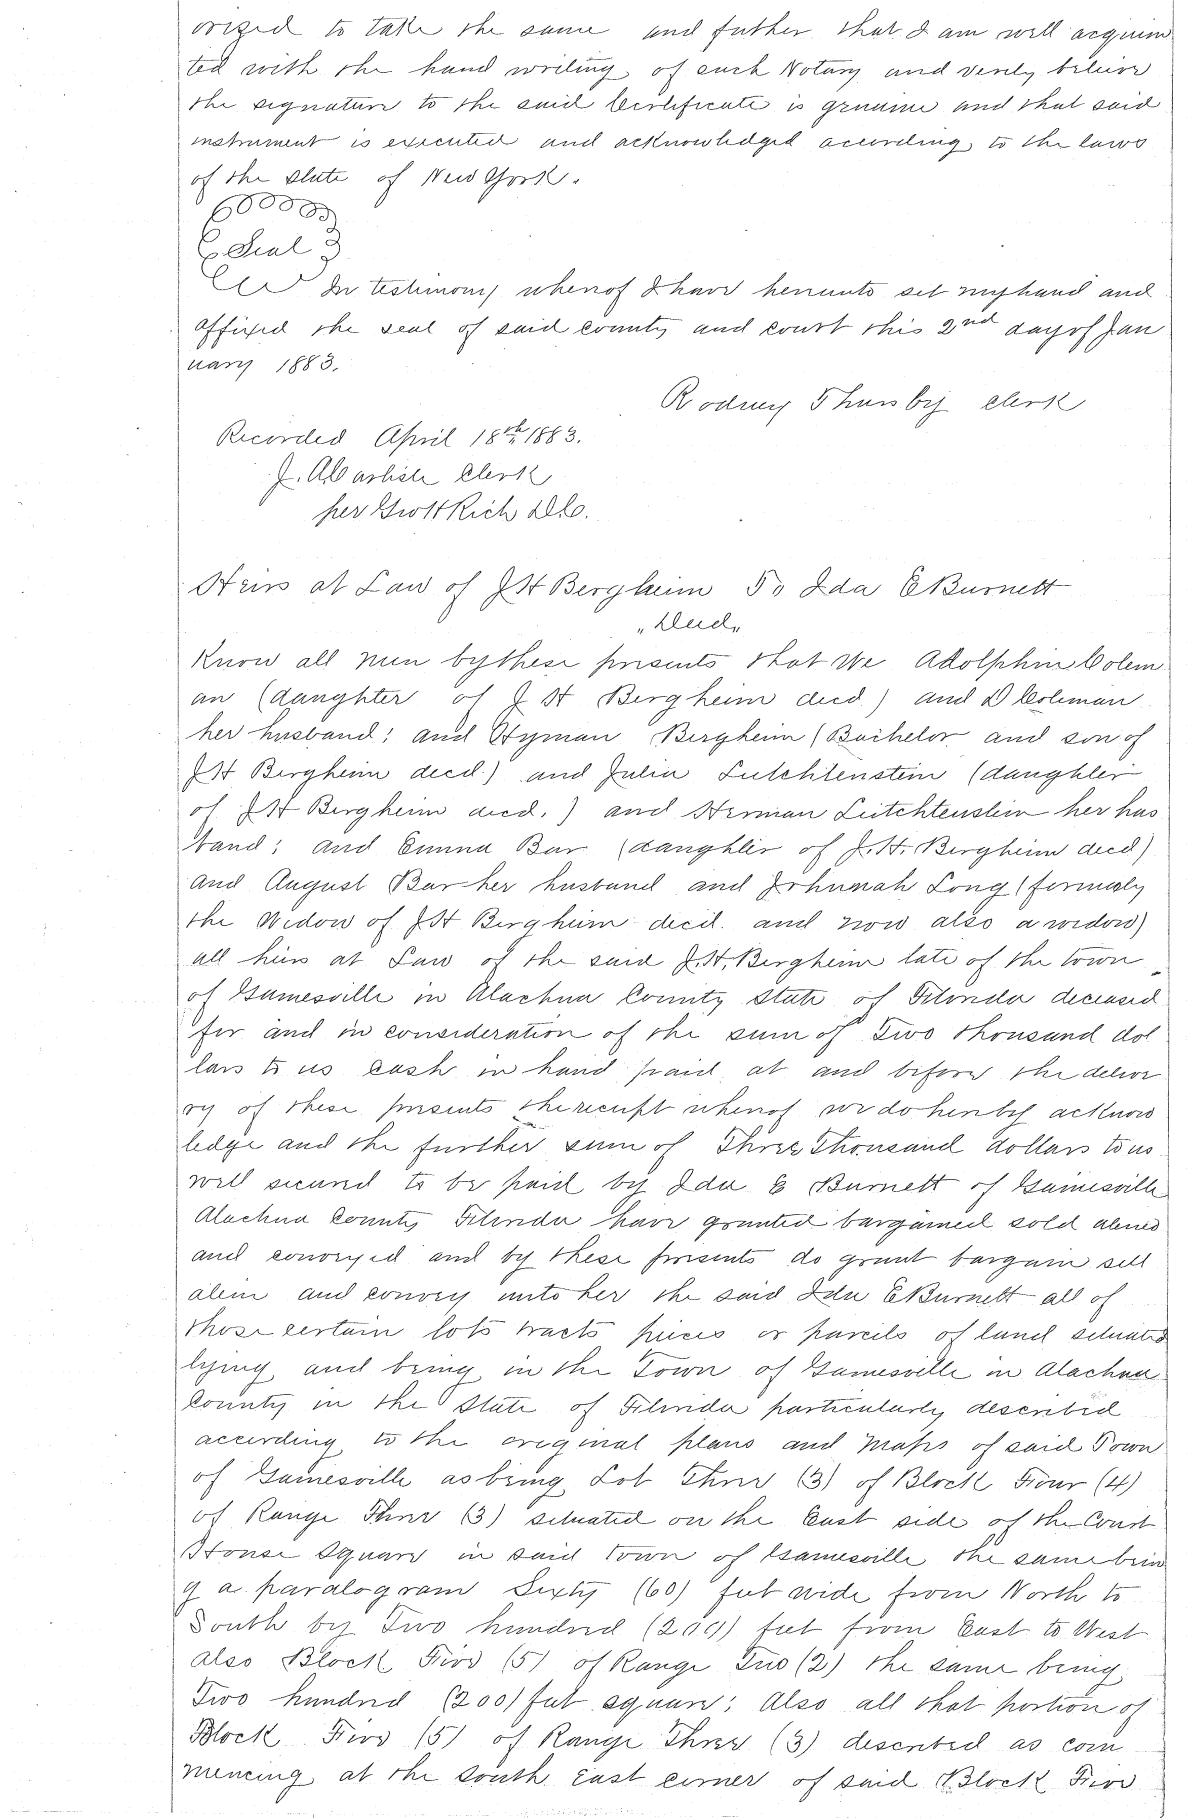 orized to take the same and futher that I am well acquain
ted with the hand writing of such Notary and verily believe
the signature to the said Certificate is genuine and that said
instrument is executed and acknowledged acording to the laws
of the state of New York.
Seal
In testimony whereof I have hereunto set my hand and
affixed the seal of said county and court this 2nd day of Jan
uary 1883.
Rodney Thursby clerk
Recorded April 18th 1883.
J. A Carlisle Clerk
per Rich D.C.
Heirs at Law of J H Bergheim To Ida E Burnett
"Deed"
Know all men by these presents that We Adolphine Colem
an (daughter of J H Bergheim decd.) and D Coleman
her husband; and Hyman Bergheim (Bachelor and son of
J H Bergheim decd.) and Julia Lutchtenstein (daughter
of J H Bergheim decd.) and Herman Leitchtenstein her hus
band; and Emma Bar (daughter of J. H. Bergheim decd)
and August Bar her husband and Johannah Long (formerly
the Widow of J H Bergheim decd. and now also a widow)
all heirs at Law of the said J. H. Bergheim late of the town
of Gainesville in Alachua County State of Florida deceased
for and in consideration of the sum of Two thousand dol
lars to us cash in hand paid at and before the delive
ry of these presents the receipt whereof we do hereby acknow
ledge and the further sum of Three Thousand dollars to us
well secured to be paid by Ida E Burnett of Gainesville
Alachua County Florida have granted bargained sold aliened
and conveyed and by these presents do grant bargain sell
alien and convey unto her the said Ida E Burnett all of
those certain lots tracts pieces or parcels of land situated
lying and being in the Town of Gainesville in Alachua
County in the State of Florida particularly described
according to the original plans and Maps of said Town
of Gainesville as being Lot Three (3) of Block Four (4)
of Range Three (3) situated on the East side of the Court
House Square in said Town of Gainesville the same bein
g a paralogram Sixty (60) feet wide from North to
South by Two hundred (200) feet from East to West
also Block Five (5) of Range Two (2) the same being
Two hundred (200) feet square; Also all that portion of
Block Five (5) of Range Three (3) described as com
mencing at the South East corner of said Block Five